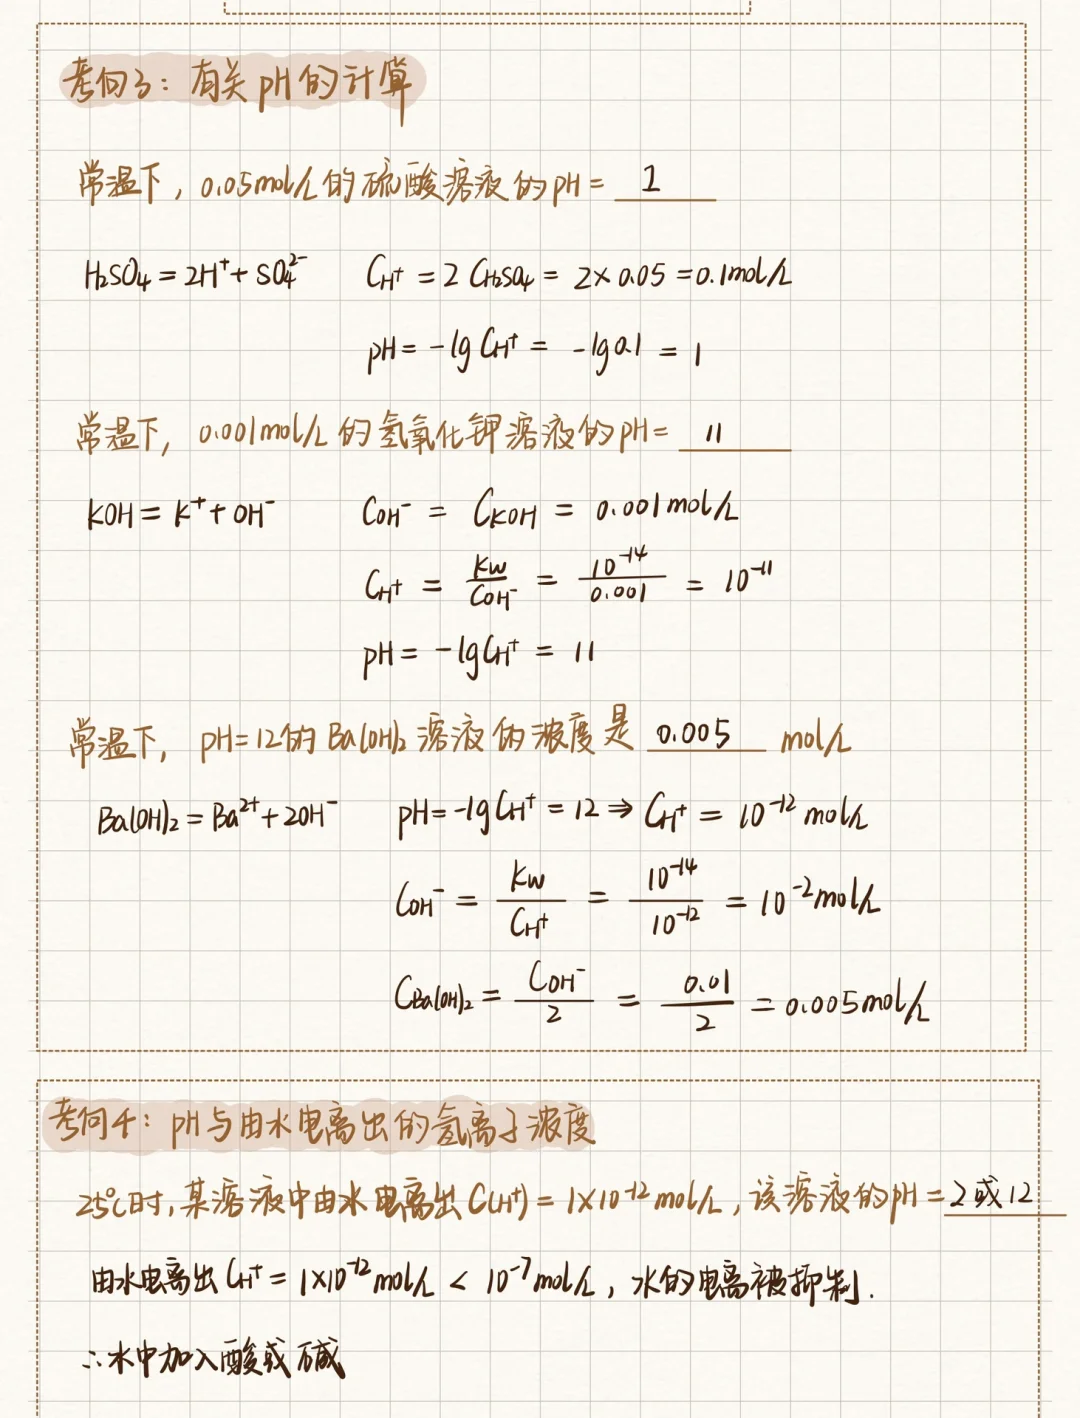 考向3：有关pH的计算
常温下，0.05mol/L的硫酸溶液的pH= 1
H₂SO₄=2H⁺+SO₄²⁻ C_H⁺ = 2 C_H₂SO₄ = 2×0.05 =0.1mol/L
pH= -lg C_H⁺ = -lg0.1 = 1
常温下，0.001mol/L的氢氧化钾溶液的pH= 11
KOH= K⁺+OH⁻ C_OH⁻ = C_KOH = 0.001mol/L
C_H⁺ = Kw/C_OH⁻ = 10⁻¹⁴/0.001 = 10⁻¹¹
pH= -lgC_H⁺ = 11
常温下，pH=12的Ba(OH)₂溶液的浓度是 0.005 mol/L
Ba(OH)₂=Ba²⁺+2OH⁻ pH=-lgC_H⁺=12⇒C_H⁺ = 10⁻¹² mol/L
C_OH⁻ = Kw/C_H⁺ = 10⁻¹⁴/10⁻¹² = 10⁻²mol/L
C_Ba(OH)₂ = C_OH⁻/2 = 0.01/2 = 0.005mol/L
考向4：pH与由水电离出的氢离子浓度
25℃时,某溶液中由水电离出C(H⁺)=1×10⁻¹²mol/L，该溶液的pH=2或12
由水电离出C_H⁺=1×10⁻¹²mol/L < 10⁻⁷mol/L，水的电离被抑制.
∴水中加入酸或碱